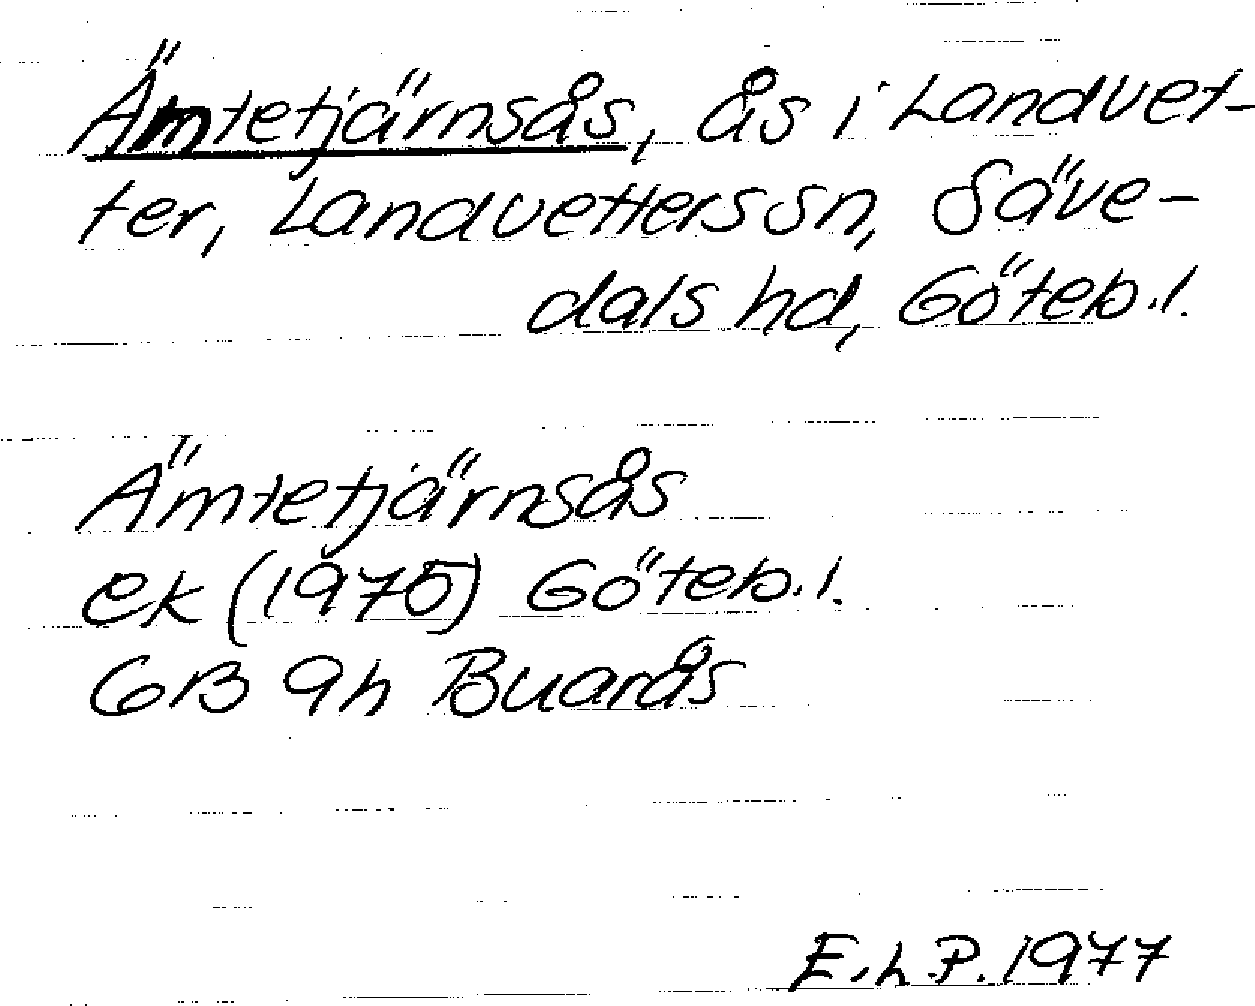 Ämtetjärnsås, ås i Landvet-
ter, Landvetters sn, Säve-
dals hd, Göteb.l.
Ämtetjärnsås
ek (1975) Göteb.l.
GB 9h Buarås
E.L.P. 1977